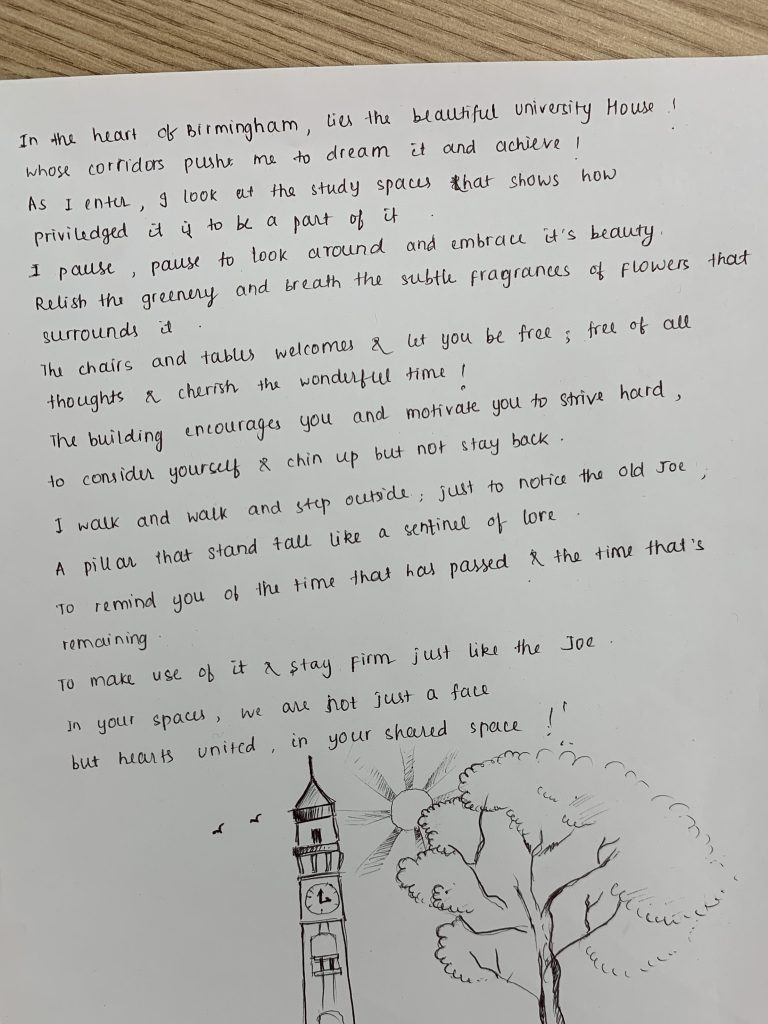 In the heart of Birmingham, lies the beautiful university House !
whose corridors pushe me to dream it and achieve !
As I enter, I look at the study spaces that shows how
priviledged it is to be a part of it .
I pause, pause to look around and embrace it's beauty.
Relish the greenery and breath the subtle fragrances of flowers that
surrounds it .
The chairs and tables welcomes & let you be free ; free of all
thoughts & cherish the wonderful time !
The building encourages you and motivate you to strive hard ,
to consider yourself & chin up but not stay back .
I walk and walk and step outside ; just to notice the old Joe ,
A pillar that stand tall like a sentinel of lore .
To remind you of the time that has passed & the time that's
remaining .
To make use of it & stay firm just like the Joe .
In your spaces, we are not just a face
but hearts united , in your shared space !!